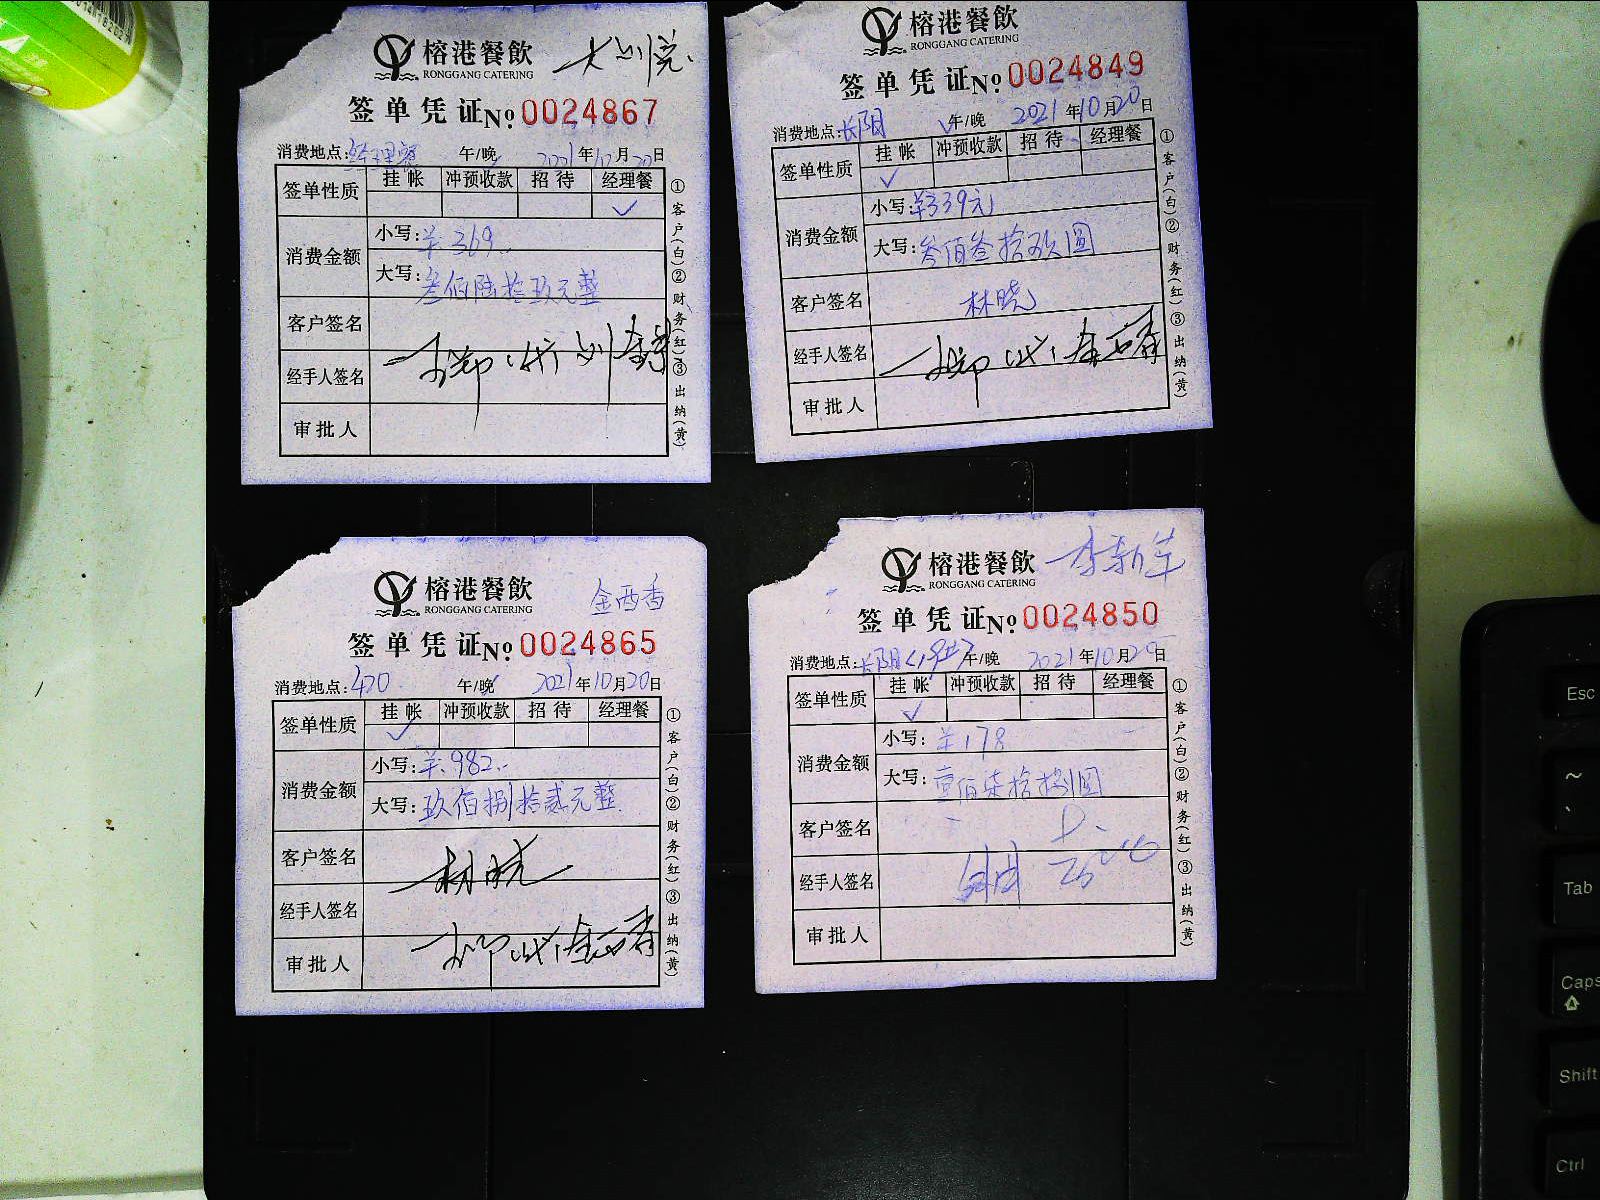 榕港餐飲
RONGGANG CATERING
签单凭证 No 0024867
消费地点: 经理餐 午/晚 2021年10月20日
签单性质 挂帐 冲预收款 招待 经理餐
✓
消费金额 小写: ¥369.
大写: 叁佰陆拾玖元整
客户签名
经手人签名
审批人
①客户(白)②财务(红)③出纳(黄)
榕港餐飲
RONGGANG CATERING
签单凭证 No 0024849
消费地点: 长阳 午/晚 2021年10月20日
签单性质 挂帐 冲预收款 招待 经理餐
✓
消费金额 小写: ¥339元
大写: 叁佰叁拾玖圆
客户签名 林晓
经手人签名
审批人
①客户(白)②财务(红)③出纳(黄)
榕港餐飲 金西香
RONGGANG CATERING
签单凭证 No 0024865
消费地点: 420 午/晚 2021年10月20日
签单性质 挂帐 冲预收款 招待 经理餐
✓
消费金额 小写: ¥982.
大写: 玖佰捌拾贰元整
客户签名 林晓
经手人签名
审批人
①客户(白)②财务(红)③出纳(黄)
榕港餐飲 李新华
RONGGANG CATERING
签单凭证 No 0024850
消费地点: 长阳 午/晚 2021年10月20日
签单性质 挂帐 冲预收款 招待 经理餐
✓
消费金额 小写: ¥178
大写: 壹佰柒拾捌圆
客户签名
经手人签名
审批人
①客户(白)②财务(红)③出纳(黄)
Esc
~
Tab
Caps
Shift
Ctrl